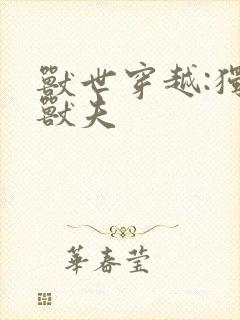 獸世穿越:獨
獸夫
華春莹